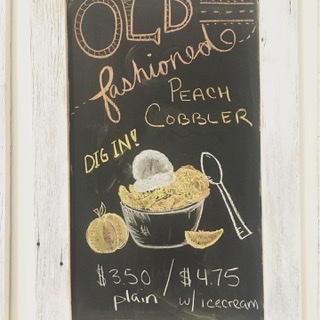 OLD
fashioned
PEACH
COBBLER
DIG IN!
$3.50 / $4.75
plain w/ icecream